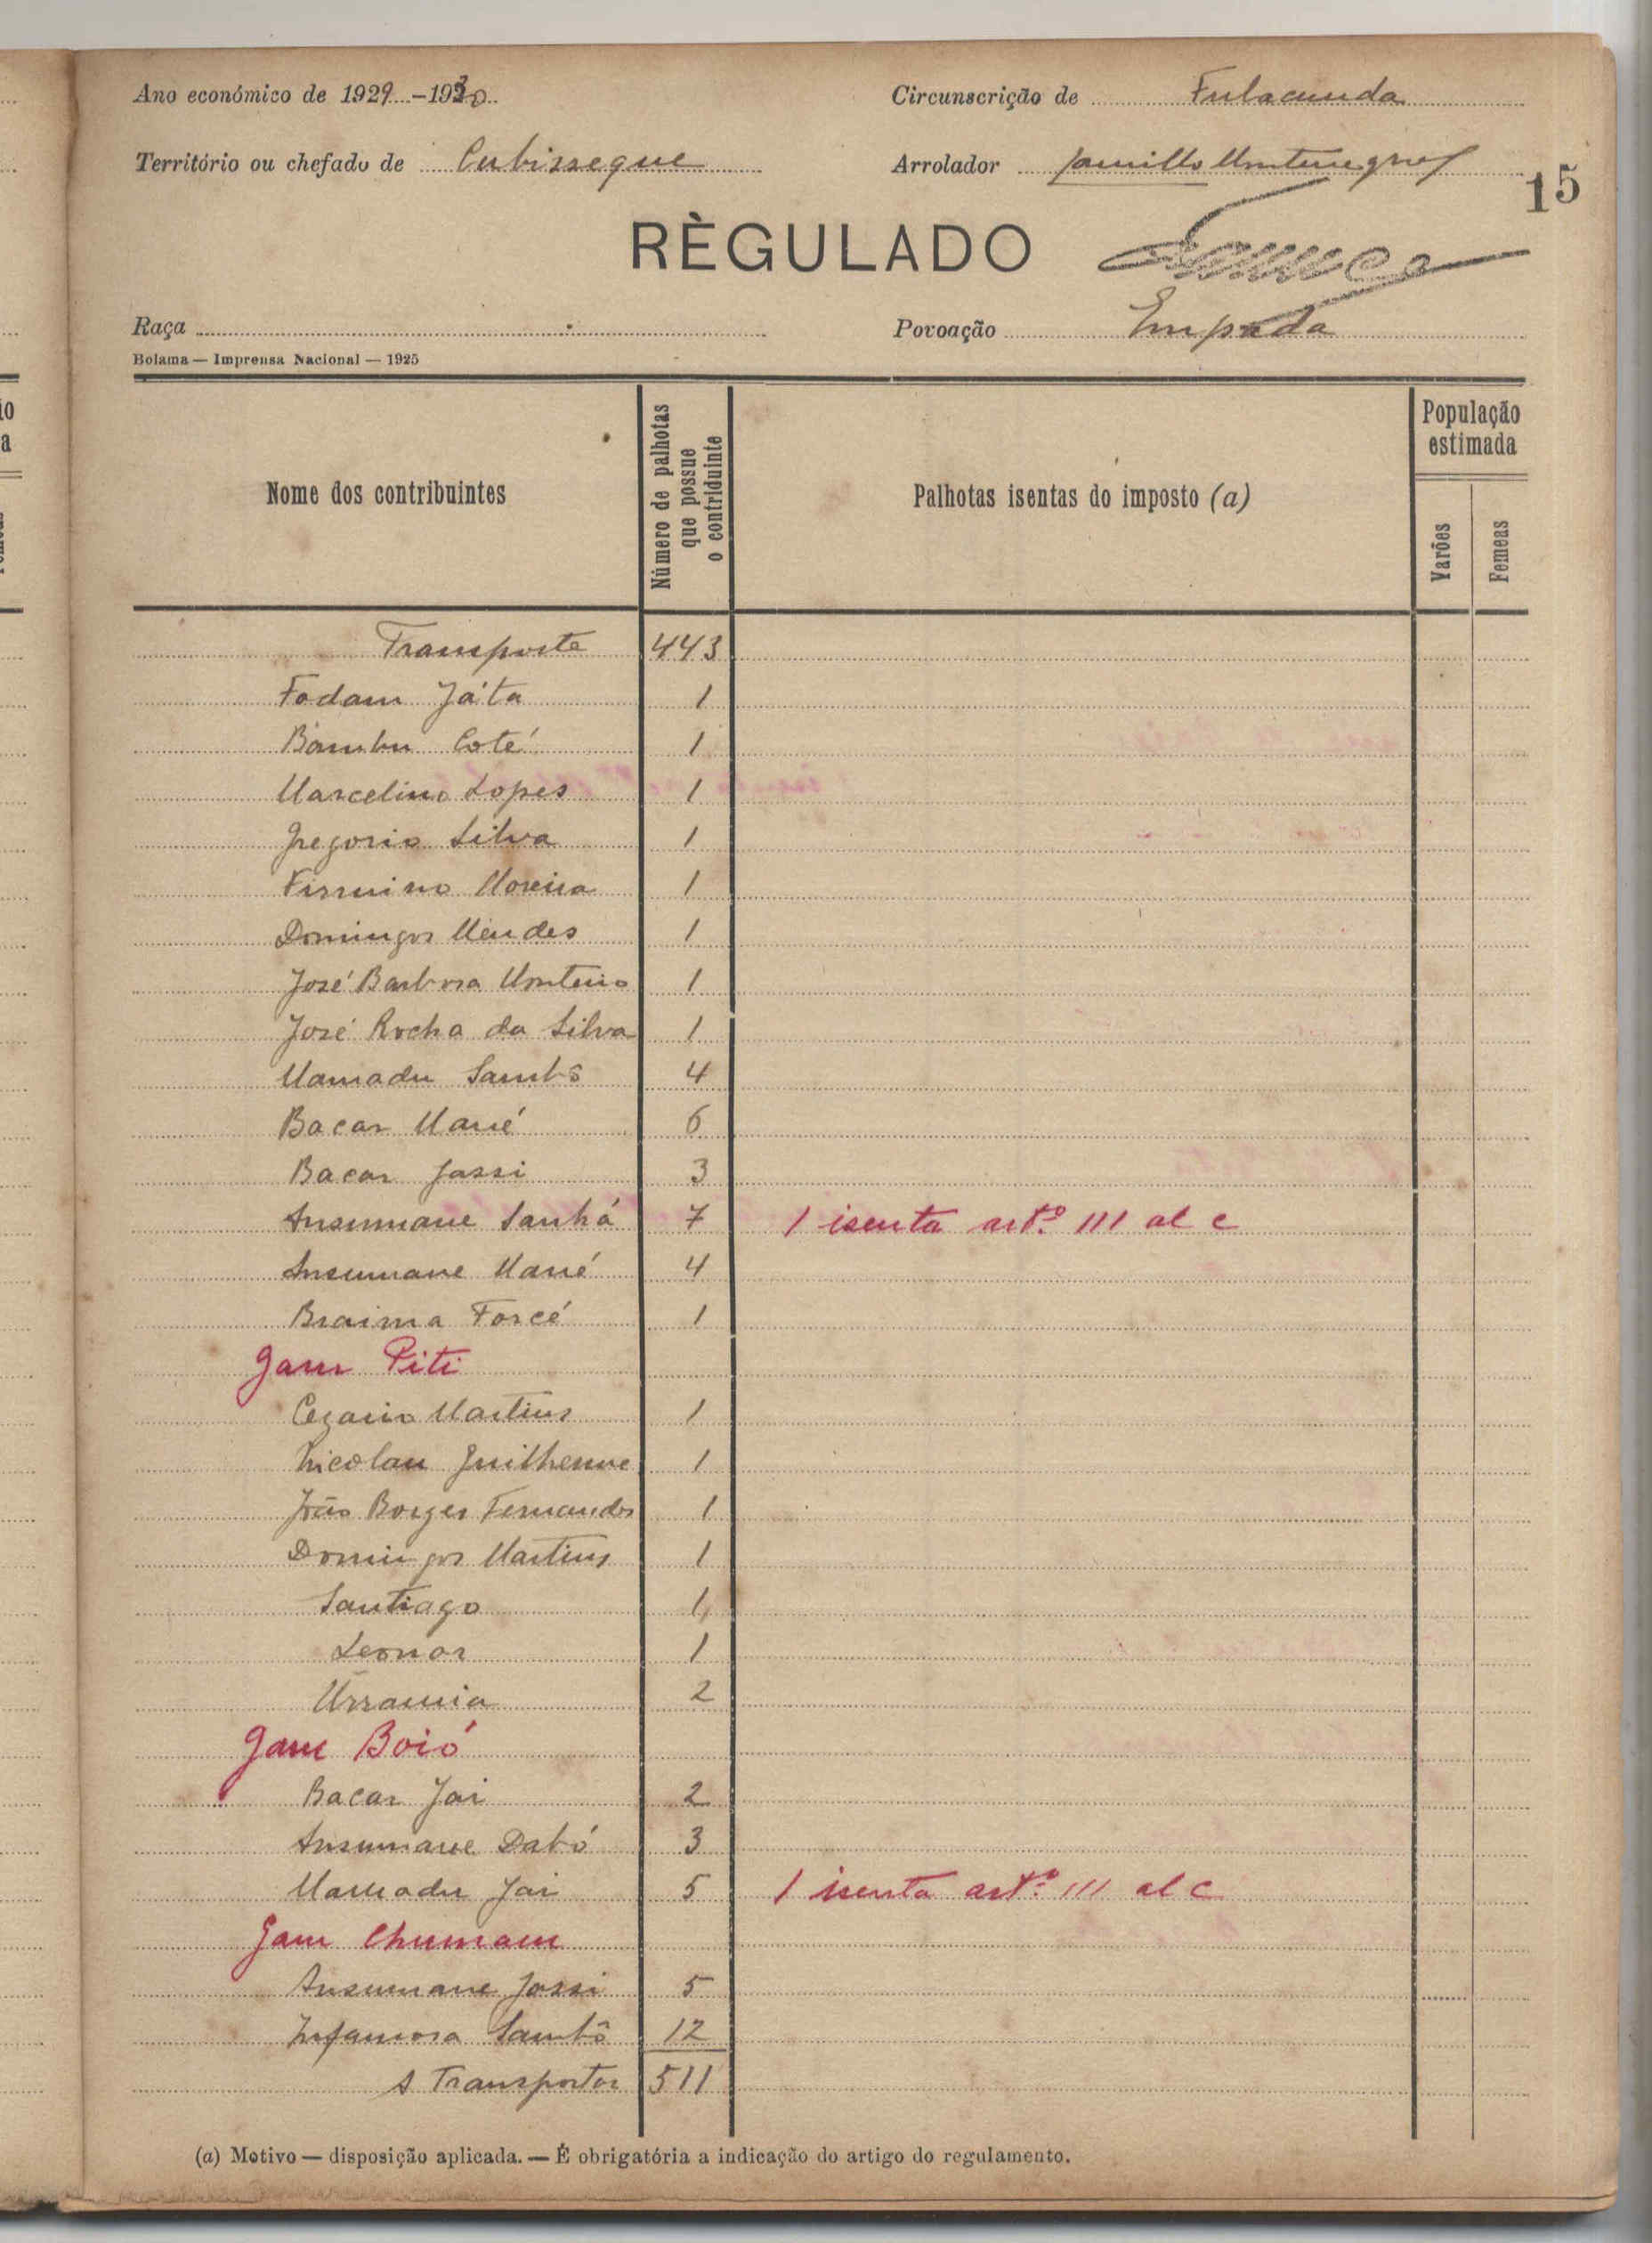 Ano económico de 1929 - 1930
Circunscrição de Fulacunda
Território ou chefado de Cubisseque
Arrolador Camillo Montenegro
15
RÈGULADO
Raça
Povoação Empada
Bolama — Imprensa Nacional — 1925
Nome dos contribuintes
Número de palhotas que possue o contriduinte
Palhotas isentas do imposto (a)
População estimada
Varões
Femeas
Transporte 443
Fodam Játa 1
Bambu Coté 1
Marcelino Lopes 1
Gregorio Silva 1
Firmino Moreira 1
Domingos Mendes 1
José Barbosa Monteiro 1
José Rocha da Silva 1
Mamadu Sambô 4
Bacar Mané 6
Bacar Jassi 3
Ansumane Sanhá 7 1 isenta artº 111 al c
Ansumane Mané 4
Braima Forcé 1
Gam Piti
Cezario Martins 1
Nicolau Guilherme 1
João Borges Fernandes 1
Domingos Martins 1
Santiago 1
Leonor 1
Urrania 2
Gam Boió
Bacar Jai 2
Ansumane Dabó 3
Mamadu Jai 5 1 isenta artº 111 al c
Gam Chumam
Ansumane Jassi 5
Infamora Sambô 12
A Transportar 511
(a) Motivo — disposição aplicada. — É obrigatória a indicação do artigo do regulamento.